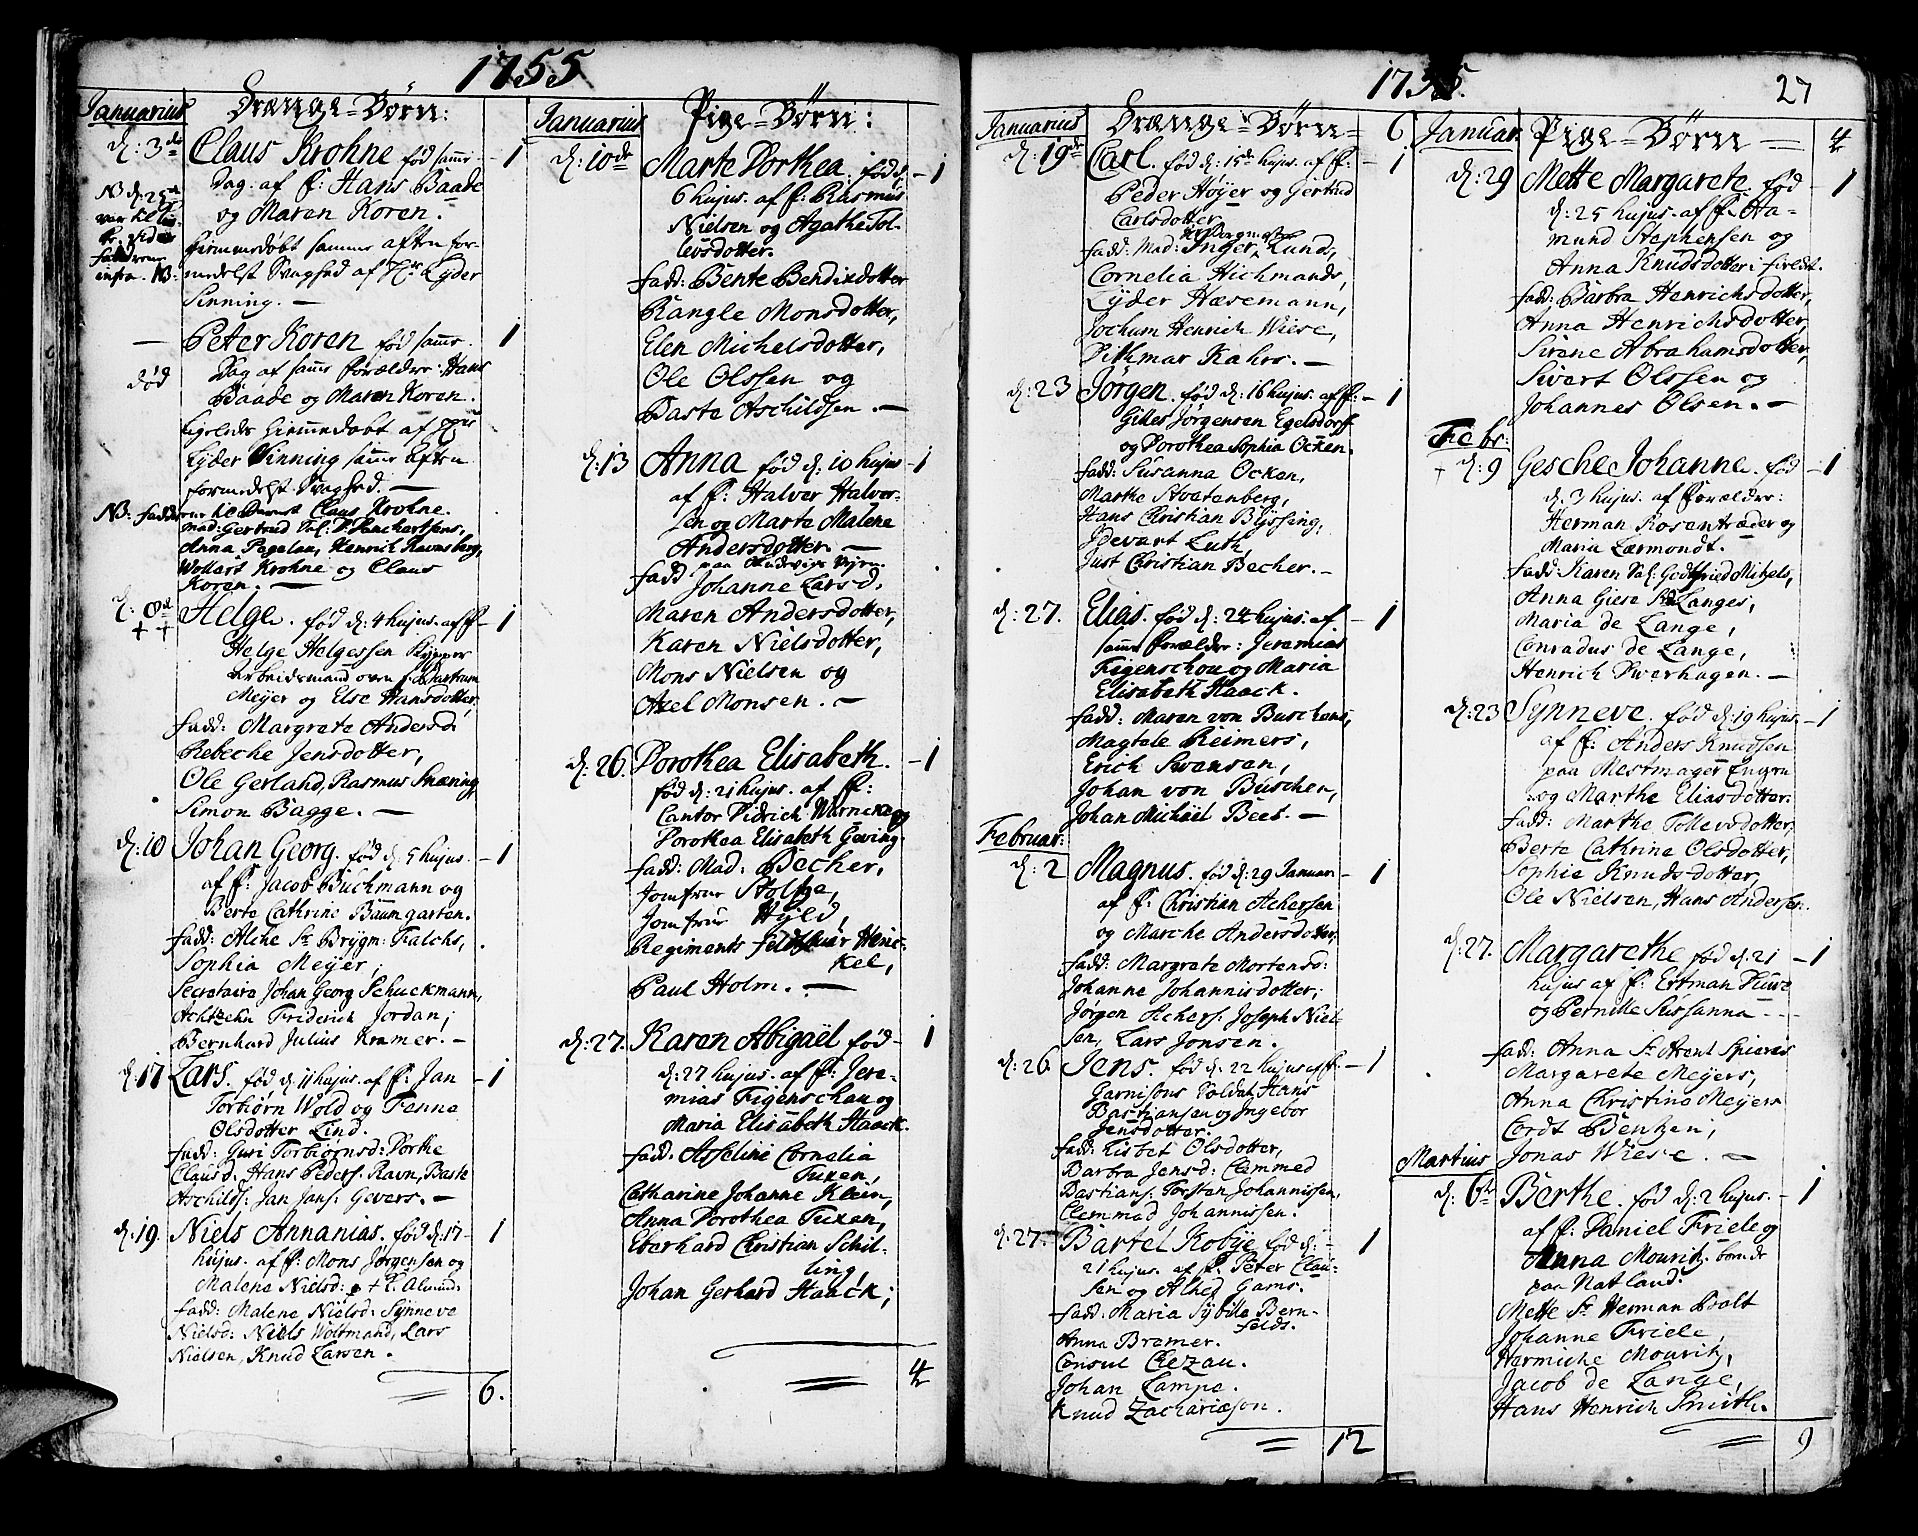 1755
Januarius
Drænge-Børn:
d: 3de Claus Krohne fød samme - 1
Dag. af F: Hans Baade
og Maren Koren.
Hiemmedøbt samme aften for-
medelst Svaghed af Hr Lyder
Sinning. —
NB d: 25
infra. NB:
— Peter Koren fød samme 1
død
Dag af samme Forældre: Hans
Baade og Maren Koren.
Ligeledes Hiemmedøbt af Hr
Lyder Sinning samme Aften
formedelst Svaghed. —
NB: fadd Claus Krohne.
Mad: Gertrud
Anna Pagelau, Henrich Ravnsberg,
Wollart Krohne og Claus
Koren. —
++ Helge. fød d: 4 hujus. af F - 1
Helge Helgessen
Arbeidsmand
Meyer og Else Hansdotter
fadd: Margrete Andersd:
Rebeche Jensdotter,
Ole Gerland, Rasmus Snæring
Simon Bagge. —
d: 10 Johan Georg. fød d: 5 hujus. - 1
af F: Jacob Buckmann og
Berte Cathrine Baumgarten.
fadd: Alche Sr Brygm: Falchs,
Sophia Meyer,
Secretaire Johan Georg Schuckmann,
Achtzehn Friderich Jordan;
Bernhard Julius Kramer. —
d: 17 Lars. fød d: 11 hujus. af F: Jan - 1
Torbiørn Wold og Tenne
Olsdotter Lind.
fadd: Guri Torbiørnsd: Dorthe
Clausd. Hans Peders. Ravn, Baste
Aschilds: Jan Jans: Gevers. —
d: 19. Niels Annanias. fød d: 17 - 1
hujus. af F: Mons Jørgensen og
Malene Nielsd:
fadd: Malene Nielsd: Synneve
Nielsd: Niels Woltmand, Lars
Nielsen, Knud Larsen.
6.
Januarius
Pige-Børn:
d: 10de Marte Dorthea. fød d: - 1
6 hujus. af F: Rasmus
Nielsen og Agathe Tol-
levsdotter.
fadd: Bente Bendixdotter
Rangle Monsdotter,
Elen Michelsdotter,
Ole Olssen og
Baste Aschildsen. —
d: 13 Anna fød d: 10 hujus - 1
af F: Halver Halver-
sen og Marte Malene
Andersdotter. —
fadd Johanne Larsd,
Maren Andersdotter,
Karen Nielsdotter,
Mons Nielsen og
Axel Monsen. —
d: 26. Dorothea Elisabeth. - 1
fød d: 21 hujus. af F:
Cantor Didrich Warneke og
Dorothea Elisabeth Geving.
fadd: Mad: Becher,
Jomfrue Stoltze,
Jomfrue Hyld,
Regiments Feldskiær Henc-
kel,
Paul Holm. —
d: 27. Karen Abigaël fød - 1
d: 27 hujus. af F: Jere-
mias Figenschau og
Maria Elisabeth Haack.
fadd. Asseline Cornelia
Tuxen,
Catharine Johanne Klein,
Anna Dorothea Tuxen,
Eberhard Christian Schil-
ling
Johan Gerhard Haack;
4
1755. 27
Januarius
Drænge-Børn 6
d: 19de Carl. fød d: 15de hujus. af F: - 1
Peder Høyer og Gertrud
Carlsdotter
fadd: Mad: Inger Lund,
Cornelia Hichmands,
Lyder Hæsemann,
Jochum Henrich Wiese,
Dithmar Kahrs. —
d: 23 Jörgen. fød d: 16 hujus. af F: - 1
Gilles Jørgensen Egelsdorf
og Dorothea Sophia Ocken.
fadd: Susanna Ocken,
Marthe Stoetenberg,
Hans Christian Blyssing,
Idevart Luth,
Just Christian Becher. —
d: 27. Elias. fød d: 24 hujus. af - 1
samme Forældre: Jeremias
Figenschou og Maria
Elisabeth Haack.
fadd: Maren von Buschens,
Magtele Reimers,
Erich Swensen,
Johan von Büschen,
Johan Michäel Beet. —
Februar:
d: 2 Magnus. fød d: 29 Januar - 1
af F: Christian Achersen
og Marche Andersdotter,
fadd: Margrete Mortensd:
Johanne Johannisdotter;
Jørgen Achers: Joseph Niel-
sen, Lars Jonsen.
d: 26. Jens. fød d: 22 hujus af F: - 1
Garnisons Soldat Hans
Bastiansen og Ingebor
Jensdotter.
fadd: Lisbet Olsdotter,
Barbra Jensd: Clemmed
Bastians: Torsten Johannissen,
Clemmed Johannissen.
d: 27. Bartel Kobye fød d: - 1
21 hujus. af F: Peter Clau-
sen og Alhed Gams.
fadd: Maria Sybille Bern-
felds.
Anna Bremer.
Consul Chezau.
Johan Lampe.
Knud Zachariæson.
12
Januar:
Pige-Børn 4
d: 29 Mette Margarete. fød - 1
d: 25 hujus. af F: Aa-
mund Stephensen og
Anna Knudsdotter:
fadd: Barbra Henrichsdotter,
Anna Henrichsdotter,
Sirene Abrahamsdotter,
Sivert Olssen og
Johannes Olsen. —
Febr:
+ d: 9 Gesche Johanne. fød - 1
d: 3 hujus. af Forældre:
Herman Rosentræder og
Maria Lærmondt.
fadd: Karen Sal: Gottfried Mikels,
Anna Giese Langes,
Maria de Lange,
Conradus de Lange,
Henrich Dwerhagen. —
d: 23 Synneve. fød d: 19 hujus. - 1
af F: Anders Knudsen
paa Mestmager Engen
og Marthe Eliasdotter.
fadd: Marthe Tollevsdotter,
Berte Cathrine Olsdotter,
Sophie Knudsdotter,
Ole Nielsen, Hans Andersen.
d: 27. Margarethe fød d: 21 - 1
hujus af F: Ertman Huwe
og Pernille Sussanna - - -
fadd: Anna Sr Arent Spieres
Margarete Meyers,
Anna Christina Meyers
Cordt Bentzen,
Jonas Wiese. —
Martius
d: 6te Berthe. fød d: 2 hujus. - 1
af F: Daniel Friele og
Anna Mouritz.
paa Natland.
Mette Sr Herman Bolt
Johanne Friele,
Hermiche Mouritz,
Jacob de Lange,
Hans Henrich Smith.
9